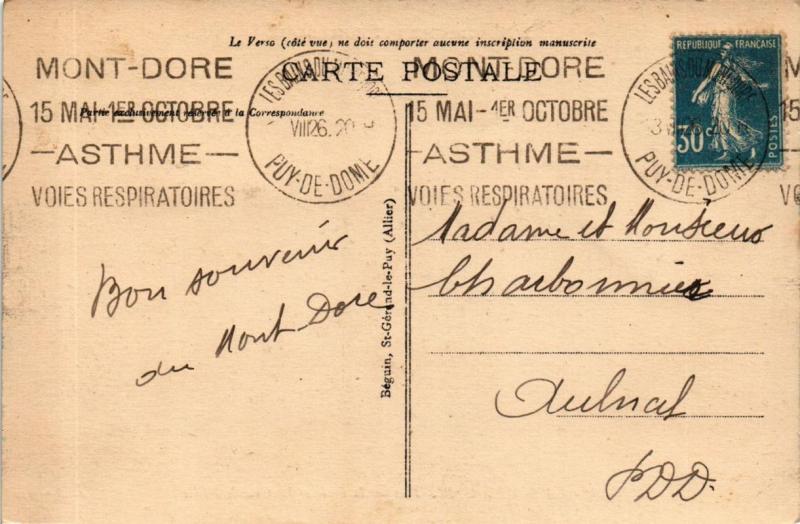 Le Verso (côté vue) ne doit comporter aucune inscription manuscrite
CARTE POSTALE
Partie exclusivement réservée à la Correspondance
MONT-DORE
15 MAI-1ER OCTOBRE
—ASTHME—
VOIES RESPIRATOIRES
VIII 26. 20
PUY-DE-DOME
MONT-DORE
15 MAI-1ER OCTOBRE
—ASTHME—
VOIES RESPIRATOIRES
PUY-DE-DOME
REPUBLIQUE FRANÇAISE
30 c
POSTES
Bon souvenir
du Mont Dore
Béguin, St-Gérand-le-Puy (Allier)
Madame et Monsieur
Charbonnier
Aulnat
PDD.